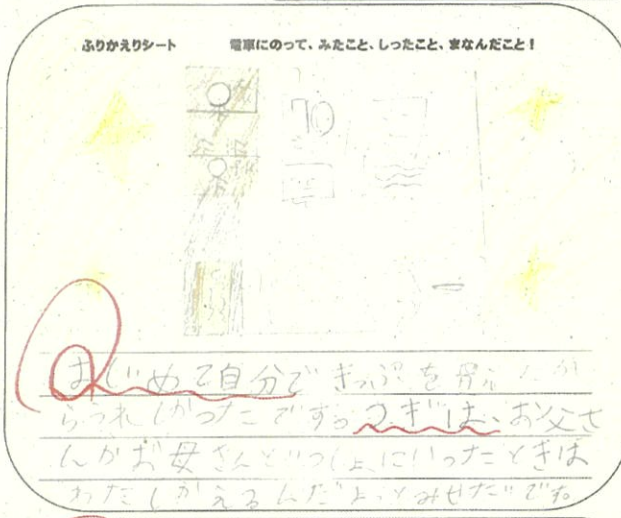 ふりかえりシート　電車にのって、みたこと、しったこと、まなんだこと！
70
はじめて自分できっぷを買ったか
らうれしかったですっ つぎは、お父さ
んかお母さんといっしょにいったときは
わたしがかえるんだよっとみせたいです。